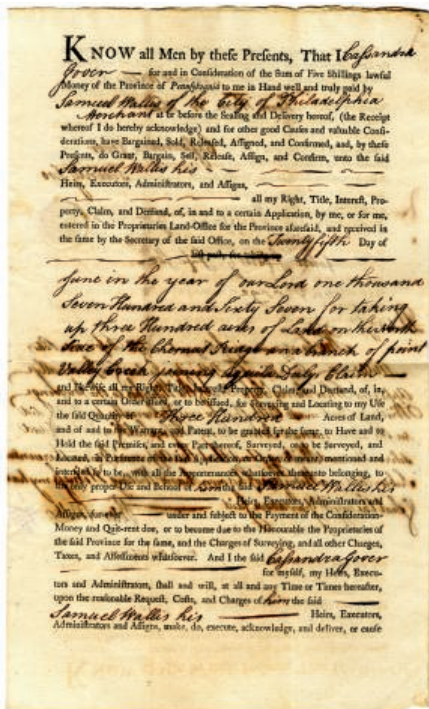 KNOW all Men by these Presents, That I Cassandra
Gover — for and in Consideration of the Sum of Five Shillings lawful
Money of the Province of Pennsylvania to me in Hand well and truly paid by
Samuel Wallis of the City of Philadelphia
Merchant at or before the Sealing and Delivery hereof, (the Receipt
whereof I do hereby acknowledge) and for other good Causes and valuable Consi-
derations, have Bargained, Sold, Released, Assigned, and Confirmed, and, by these
Presents, do Grant, Bargain, Sell, Release, Assign, and Confirm, unto the said
Samuel Wallis his
Heirs, Executors, Administrators, and Assigns,
all my Right, Title, Interest, Pro-
perty, Claim, and Demand, of, in and to a certain Application, by me, or for me,
entered in the Proprietaries Land-Office for the Province aforesaid, and received in
the same by the Secretary of the said Office, on the Twenty fifth Day of
June in the year of our Lord one thousand
Seven Hundred and Sixty Seven for taking
up three Hundred acres of Land on the North
side of the Chesnut Ridge on a branch of
Valley Creek joining Claim —
and likewise all my Right, Title, Interest, Property, Claim and Demand, of, in,
and to a certain Order issued, or to be issued, for Surveying and Locating to my Use
the said Quantity of Three Hundred Acres of Land,
and of and to the Warrant and Patent, to be granted for the same, to Have and to
Hold the said Premises, and every Part thereof, Surveyed, or to be Surveyed, and
Located, in Pursuance of the said Application, or Order, as above mentioned and
intended to be, with all the Appurtenances whatsoever thereunto belonging, to
the only proper Use and Behoof of him the said Samuel Wallis his
Heirs, Executors, Administrators and
Assigns, for ever under and subject to the Payment of the Consideration-
Money and Quit-rent due, or to become due to the Honourable the Proprietaries of
the said Province for the same, and the Charges of Surveying, and all other Charges,
Taxes, and Assessments whatsoever. And I the said Cassandra Gover
for myself, my Heirs, Execu-
tors and Administrators, shall and will, at all and any Time or Times hereafter,
upon the reasonable Request, Costs, and Charges of him the said
Samuel Wallis his Heirs, Executors,
Administrators and Assigns, make, do, execute, acknowledge, and deliver, or cause